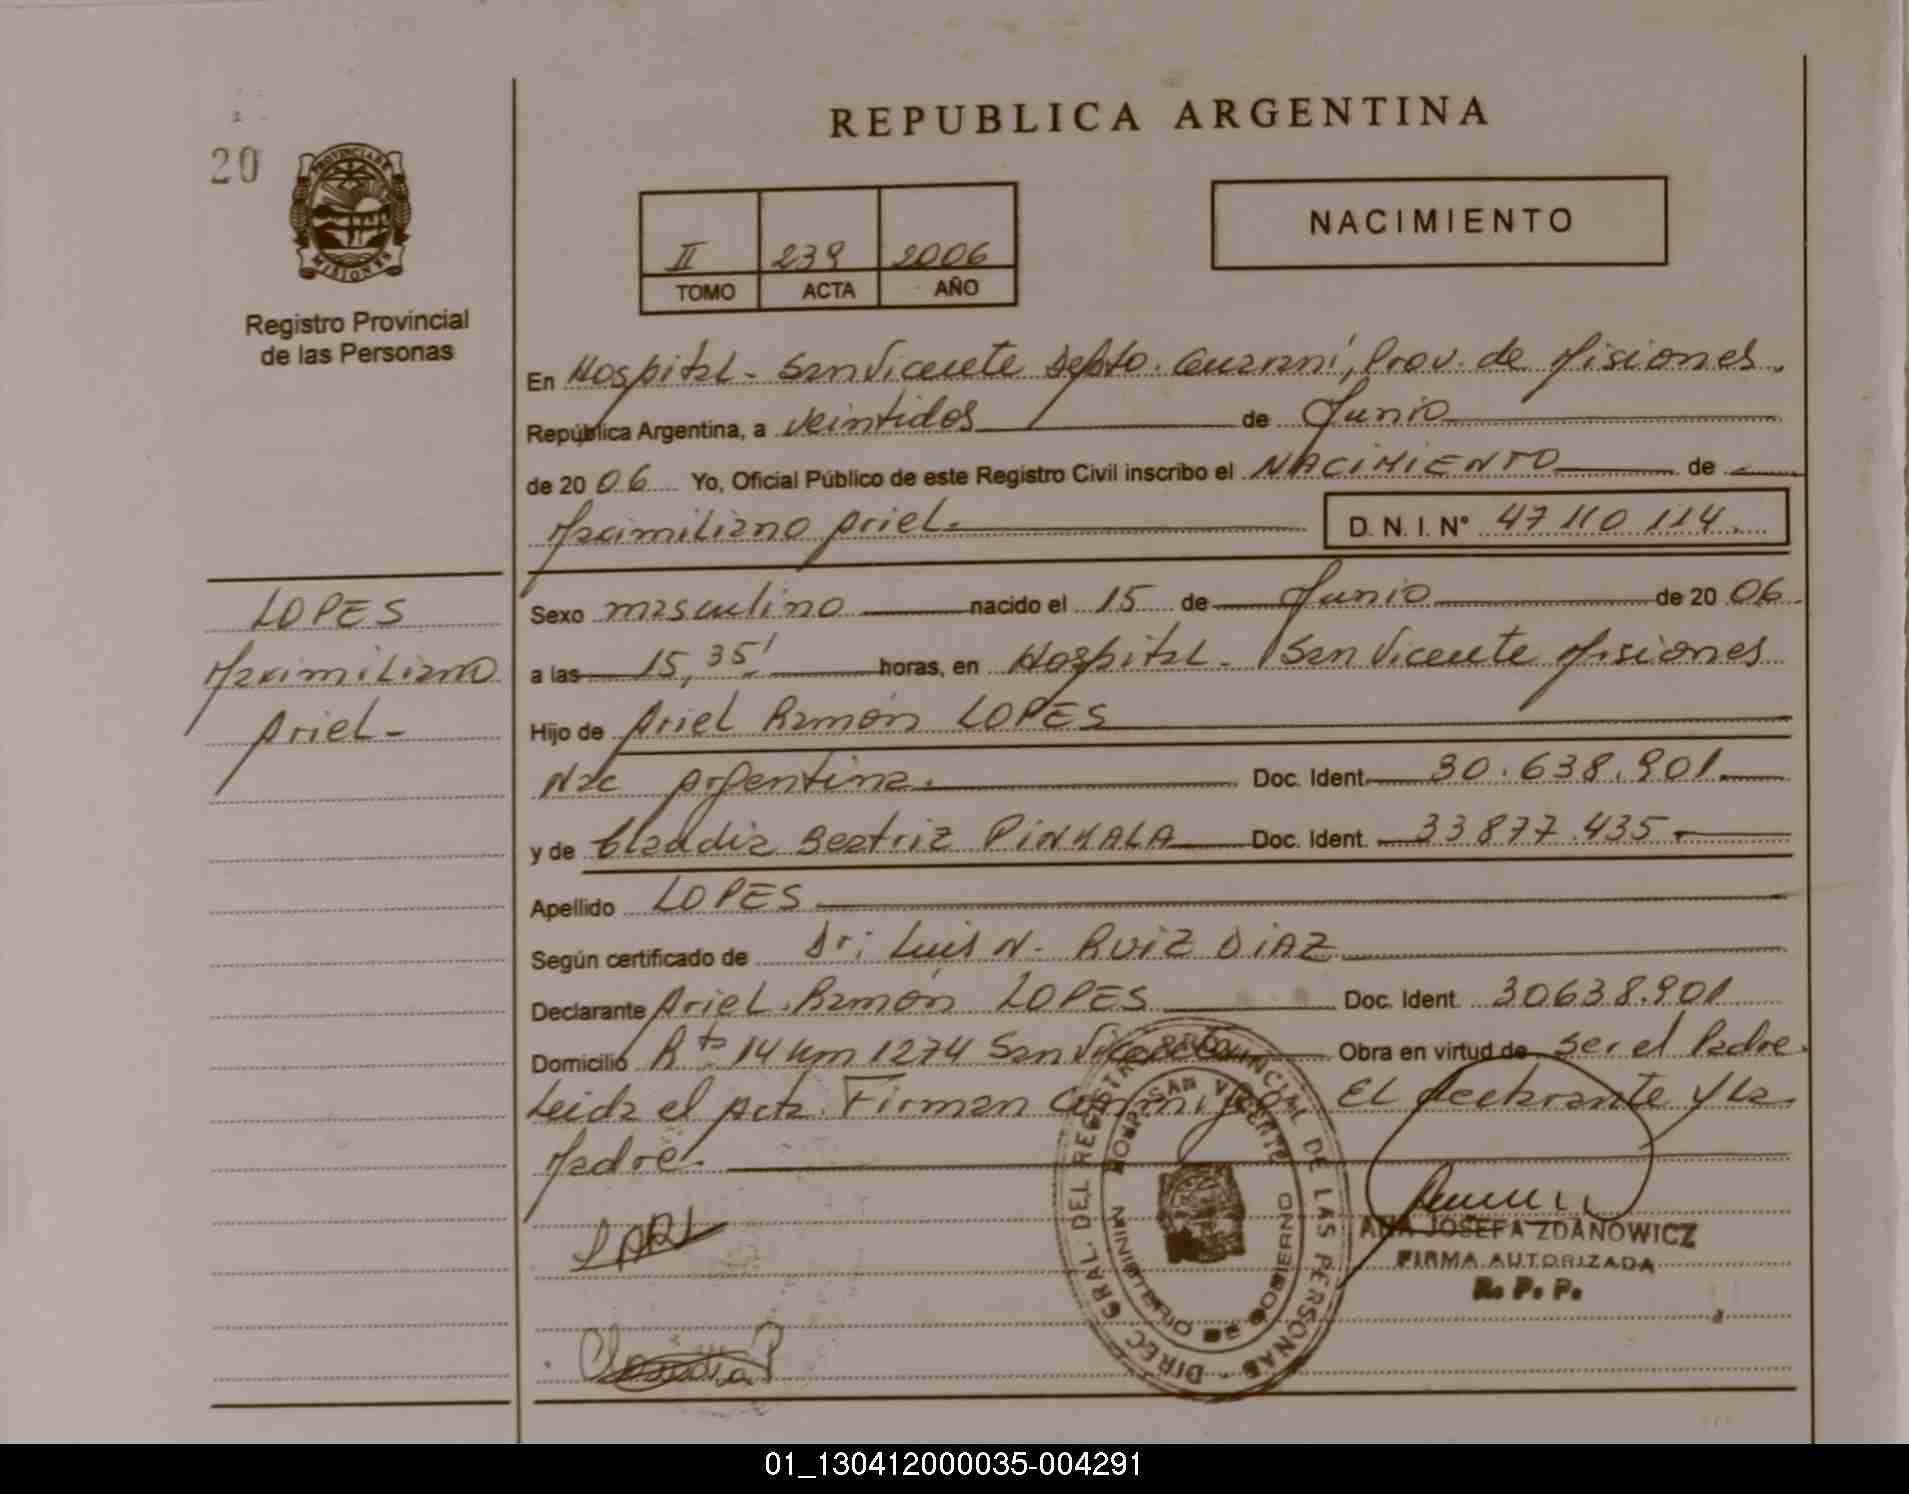 20
PROVINCIA DE
MISIONES
Registro Provincial
de las Personas
REPUBLICA ARGENTINA
II 239 2006
TOMO ACTA AÑO
NACIMIENTO
En Hospital - San Vicente Depto. Guaraní, Prov. de Misiones.
República Argentina, a veintidos de Junio
de 20 06 Yo, Oficial Público de este Registro Civil inscribo el NACIMIENTO de
Maximiliano Ariel.- D. N. I. N° 47 110 114.
LOPES
Maximiliano
Ariel -
Sexo masculino nacido el 15 de Junio de 20 06.
a las 15,35' horas, en Hospital - San Vicente Misiones
Hijo de Ariel Ramón LOPES
Nac Argentina. Doc. Ident. 30.638.901.
y de Claudia Beatriz PINHALA Doc. Ident. 33877.435.
Apellido LOPES
Según certificado de Dr; Luis N. RUIZ DIAZ
Declarante Ariel Ramón LOPES Doc. Ident. 30638.901
Domicilio Rta 14 Km 1274 San Vicente Obra en virtud de Ser el Padre.
Leida el Acta Firman Conmigo, El declarante y La
Madre.
DIREC GRAL. DEL REGISTRO PROVINCIAL DE LAS PERSONAS
HOSP. SAN VICENTE
GOBIERNO
ANA JOSEFA ZDANOWICZ
FIRMA AUTORIZADA
R. P. P.
Claudia P
01_130412000035-004291